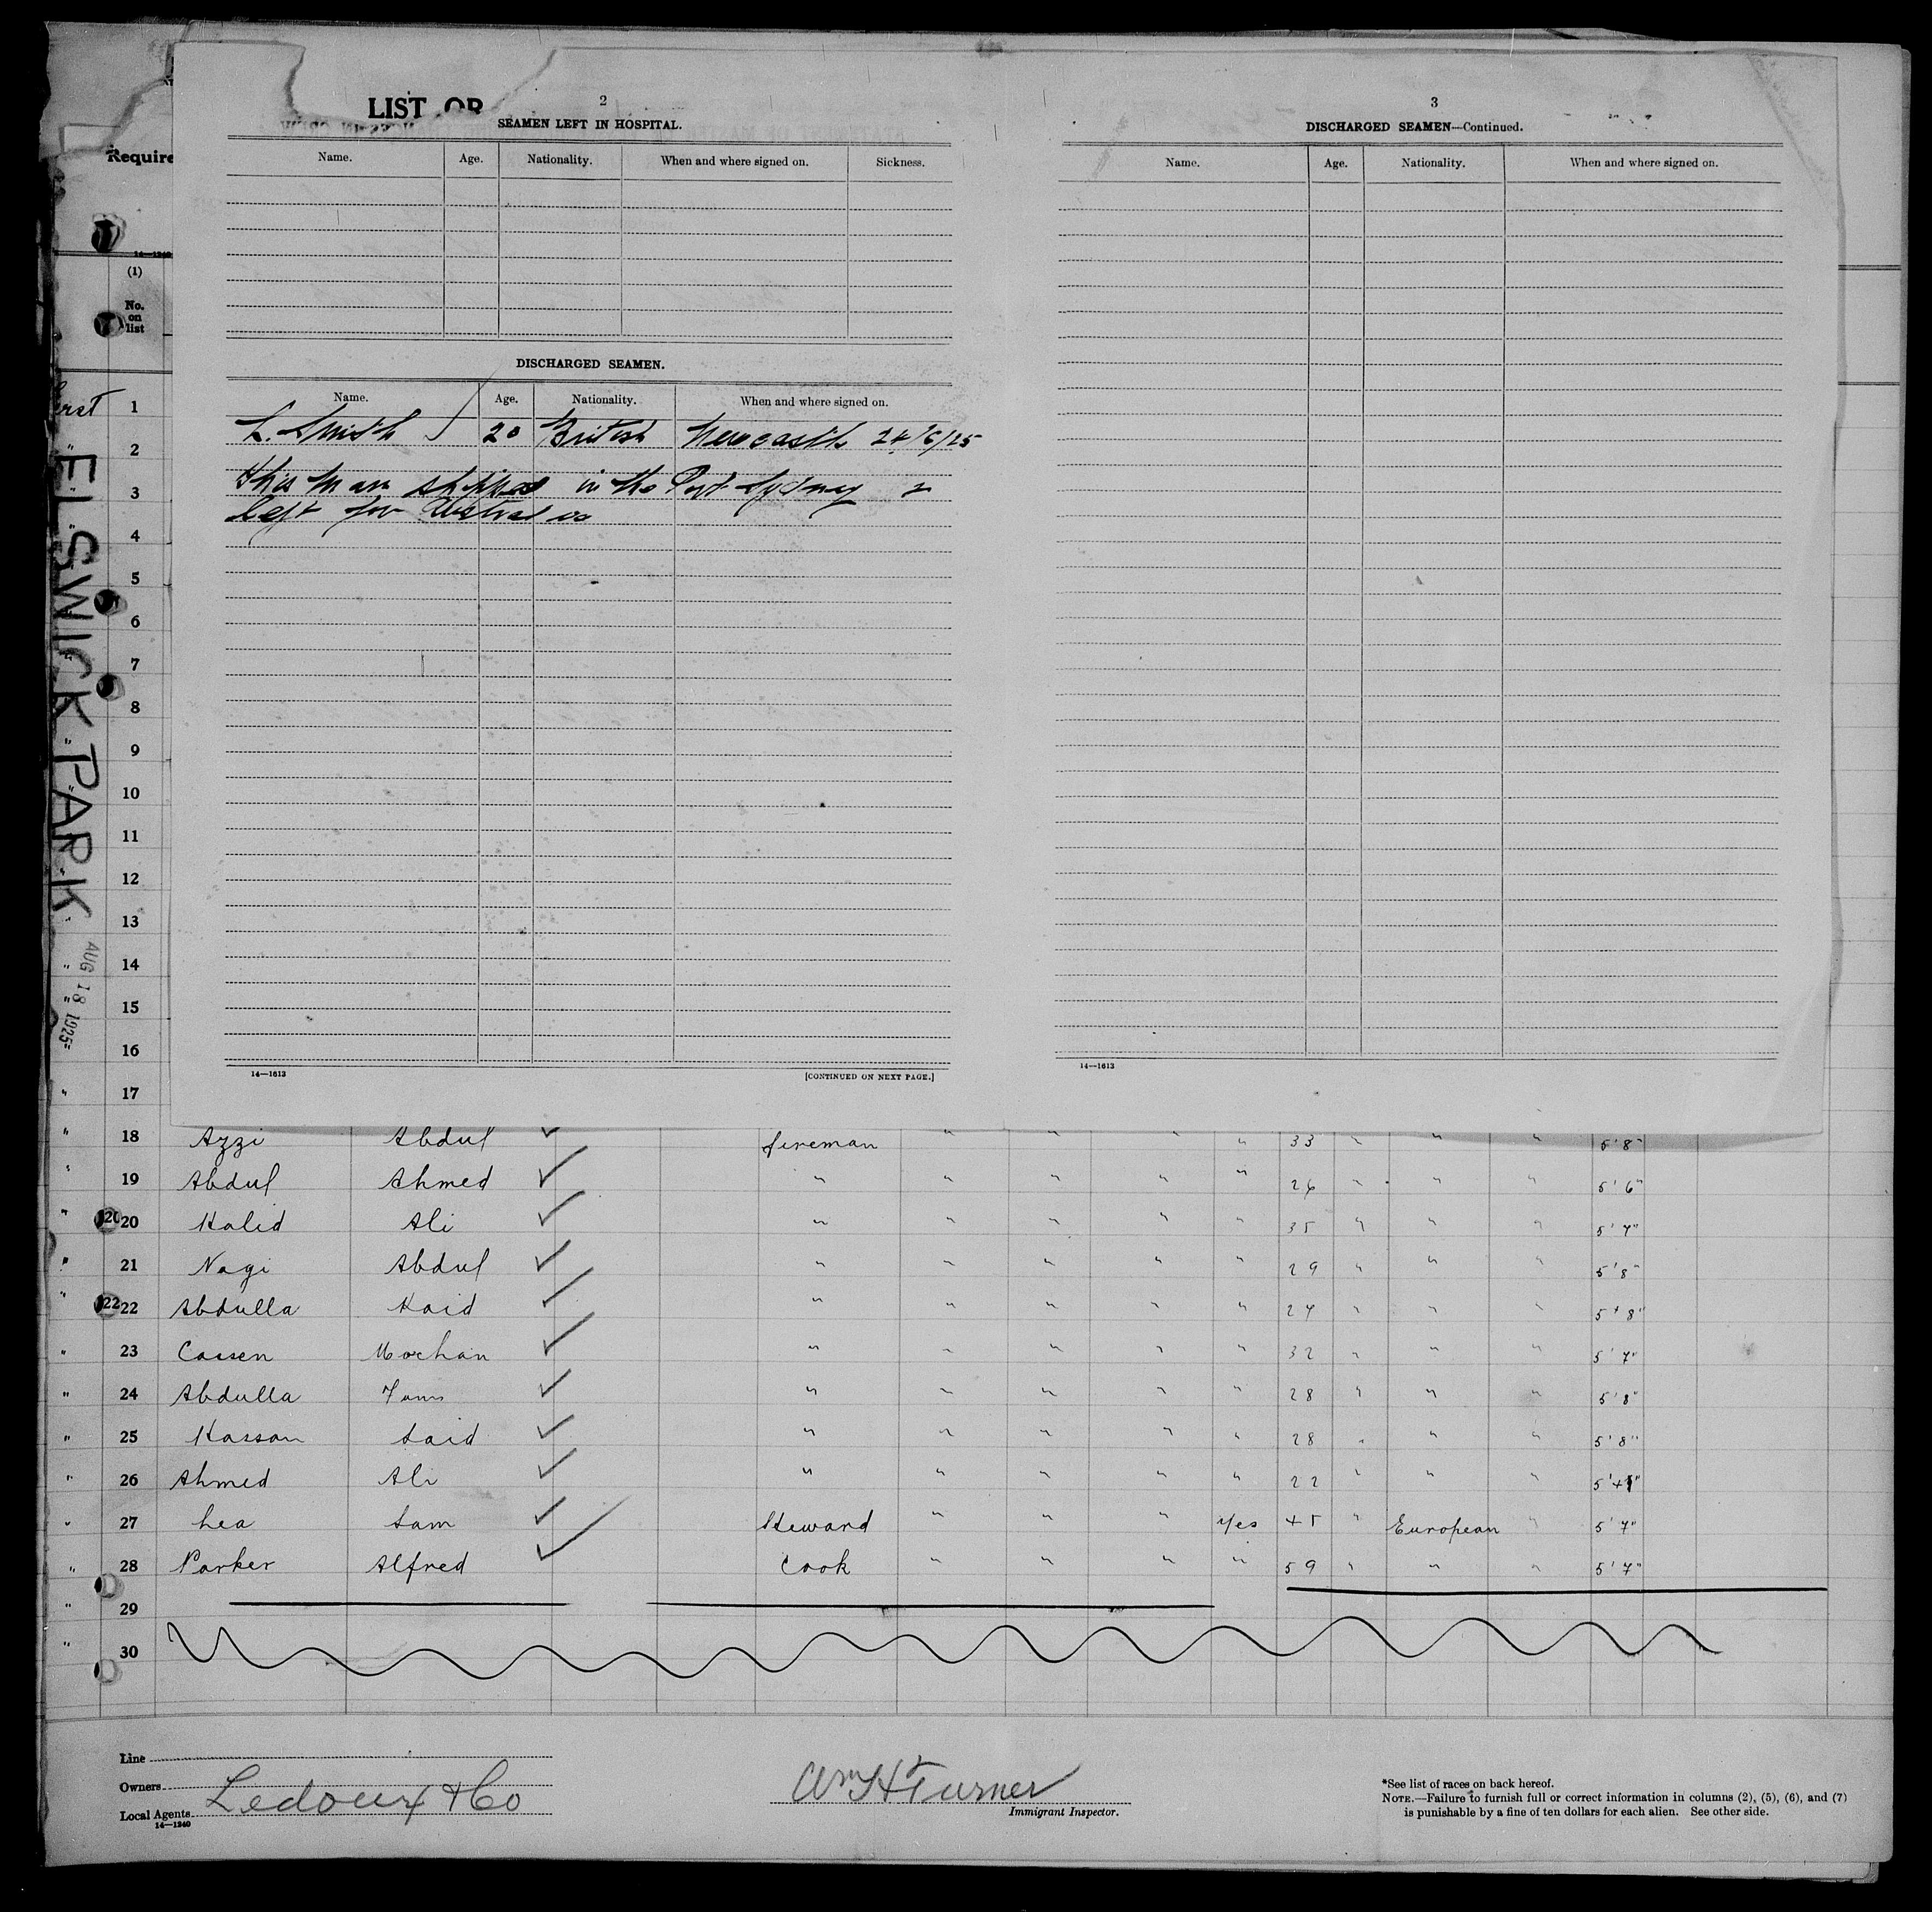 LIST OR
2
SEAMEN LEFT IN HOSPITAL.
Name. Age. Nationality. When and where signed on. Sickness.
DISCHARGED SEAMEN.
Name. Age. Nationality. When and where signed on.
L. Smith 20 British Newcastle 24/6/25
This man shipped in the Port Sydney &
left for Australia
14—1613
[CONTINUED ON NEXT PAGE.]
3
DISCHARGED SEAMEN—Continued.
Name. Age. Nationality. When and where signed on.
14—1613
Require
14—1240
(1)
No.
on
list
1
2
3
4
5
6
7
8
9
10
11
12
13
14
15
16
17
ELSWICK PARK
AUG 18 1925
" 18 Azzi Abdul ✓ fireman " " " " 33 " " " 5' 8"
" 19 Abdul Ahmed ✓ " " " " " 26 " " " 5' 6"
" 20 Halid Ali ✓ " " " " " 35 " " " 5' 7"
" 21 Nagi Abdul ✓ " " " " " 29 " " " 5' 8"
" 22 Abdulla Kaid ✓ " " " " " 27 " " " 5' 8"
" 23 Cassen ✓ " " " " " 32 " " " 5' 7"
" 24 Abdulla ✓ " " " " " 28 " " " 5' 8"
" 25 Hassan Said ✓ " " " " " 28 " " " 5' 8"
" 26 Ahmed Ali ✓ " " " " " 22 " " "
" 27 Lea Sam ✓ Steward " " " Yes 45 " European " 5' 7"
" 28 Parker Alfred ✓ Cook " " " " 59 " " " 5' 7"
" 29
" 30
Line
Owners
Local Agents Ledoux & Co
14—1240
Wm H Turner
Immigrant Inspector.
*See list of races on back hereof.
NOTE.—Failure to furnish full or correct information in columns (2), (5), (6), and (7)
is punishable by a fine of ten dollars for each alien. See other side.